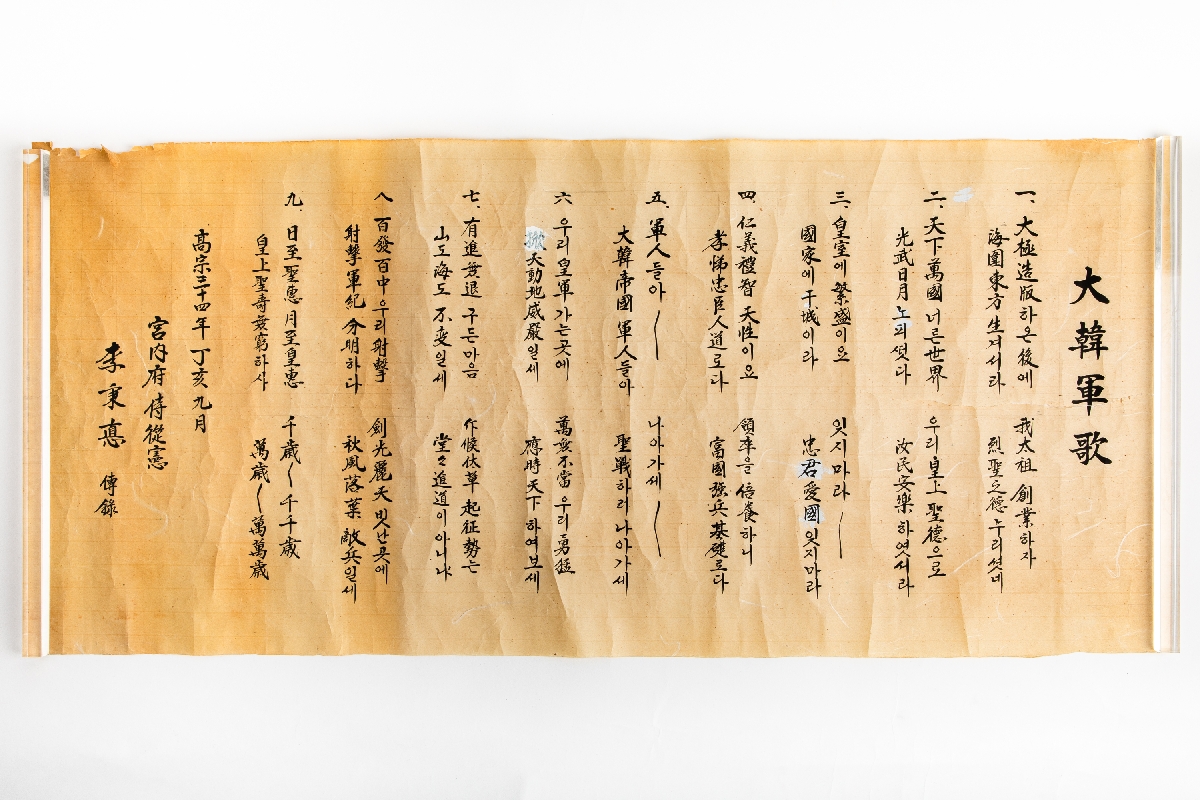 大韓軍歌
一、大極造版하온後에 我太祖 創業하자
海圍東方生겨서라 烈聖之德누리셧네
二、天下萬國 너른世界 우리皇上 聖德으로
光武日月 노피썻다 汝民安樂하엿서라
三、皇室에 繁盛이요 잇지마라 〵
國家에 干城이라 忠君愛國 잇지마라
四、仁義禮智 天性이요 領率을 倍養하니
孝悌忠臣人道로다 富國强兵基礎로다
五、軍人들아 〵 나아가세 〵
大韓帝國 軍人들아 聖戰하러 나아가세
六 우리皇軍 가는곳에 萬夫不當 우리勇猛
掀天動地威嚴일세 應時天下하여보세
七、有進無退 구든마음 作候伏草 起征勢는
山도海도 不變일세 堂々進道이아니냐
八 百發百中 우리射擊 劍光麗天 빗난곳에
射擊軍紀 分明하다 秋風落葉 敵兵일세
九、日至聖惠 月至皇惠 千歲〵千千歲
皇上聖壽無窮하사 萬歲〵萬萬歲
高宗三十四年 丁亥 九月
宮內府侍從憲
李秉悳 傳錄